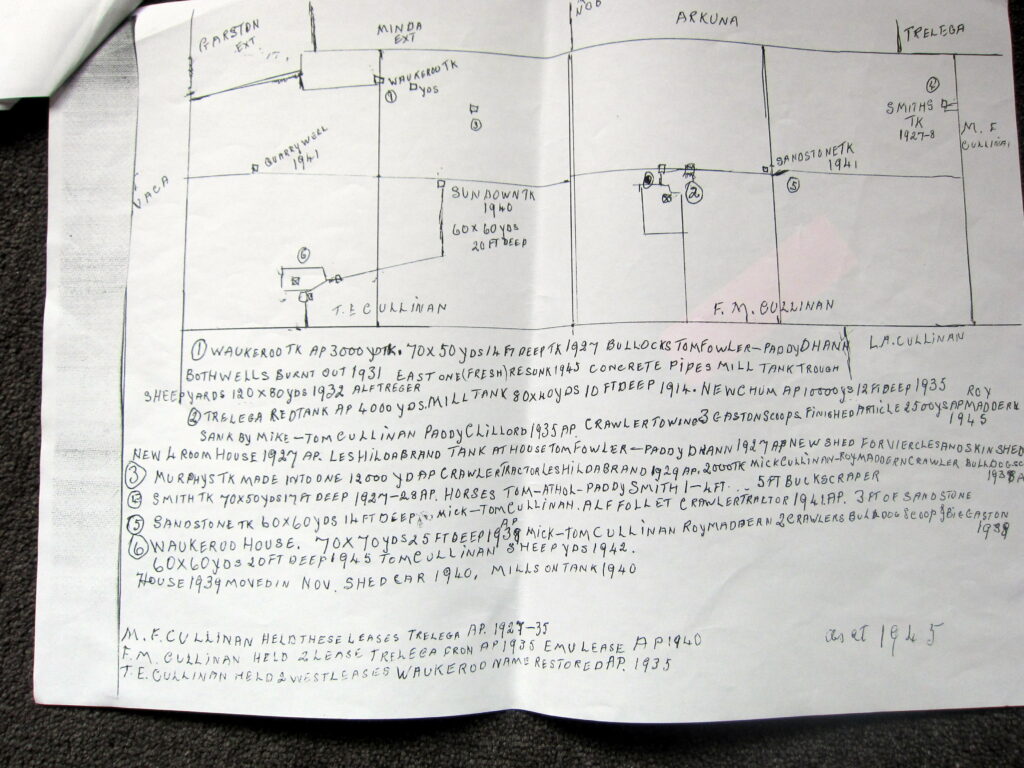 GARSTON
EXT
MINDA
EXT
NOB
ARKUNA
TRELEGA
WAUKEROO TK
① YDS
③
④
SMITHS
TK
1927-8
M. F
CULLINAN
QUARRY WELL
1941
VACA
SUNDOWN TK
1940
60 X 60 YDS
20 FT DEEP
②
SANDSTONE TK
1941
⑤
⑥
T. E CULLINAN
F. M. CULLINAN
L.A. CULLINAN
① WAUKEROO TK AP 3000 YD TK. 70 X 50 YDS 14 FT DEEP TK 1927 BULLOCKS TOM FOWLER - PADDY DHANN
BOTH WELLS BURNT OUT 1931 EAST ONE (FRESH) RESUNK 1945 CONCRETE PIPES MILL TANK TROUGH
SHEEP YARDS 120 X 80 YDS 1932 ALF TREGER
② TRELEGA RED TANK AP 4000 YDS. MILL TANK 80 X 40 YDS 10 FT DEEP 1914. NEW CHUM AP 1000 YDS 12 FT DEEP 1935 ROY
SANK BY MIKE - TOM CULLINAN PADDY CLILLORD 1935 AP. CRAWLER TOWING 3 GASTON SCOOPS FINISHED ARTICLE 2500 YS AP MADDERN
1945
NEW 4 ROOM HOUSE 1927 AP. LES HILDABRAND TANK AT HOUSE TOM FOWLER - PADDY DHANN 1927 AP NEW SHED FOR VIERCLES AND SKIN SHED
③ MURPHYS TK MADE INTO ONE 12000 YD AP CRAWLER TRACTOR LES HILDABRAND 1929 AP. 2000 TK MICK CULLINAN - ROY MADDERN CRAWLER BULLDOG SCO
1938 A
④ SMITH TK 70 X 50 YDS 17 FT DEEP 1927-28 AP. HORSES TOM - ATHOL - PADDY SMITH 1 - 4 FT ... 5 FT BUCKSCRAPER
⑤ SANDSTONE TK 60 X 60 YDS 14 FT DEEP MICK - TOM CULLINAN. ALF FOLLET CRAWLER TRACTOR 1941 AP. 3 FT OF SANDSTONE
⑥ WAUKEROO HOUSE. 70 X 70 YDS 25 FT DEEP 1938 AP MICK - TOM CULLINAN ROY MADDERN 2 CRAWLERS BULLDOG SCOOP & BIG GASTON
1938
60 X 60 YDS 20 FT DEEP 1945 TOM CULLINAN SHEEP YDS 1942.
HOUSE 1939 MOVED IN NOV. SHED CAR 1940, MILLS ON TANK 1940
M. F. CULLINAN HELD THESE LEASES TRELEGA AP. 1927-35
F. M. CULLINAN HELD 2 LEASE TRELEGA FROM AP 1935 EMU LEASE AP 1940
T. E. CULLINAN HELD 2 WEST LEASES WAUKEROO NAME RESTORED AP. 1935
as at 1945